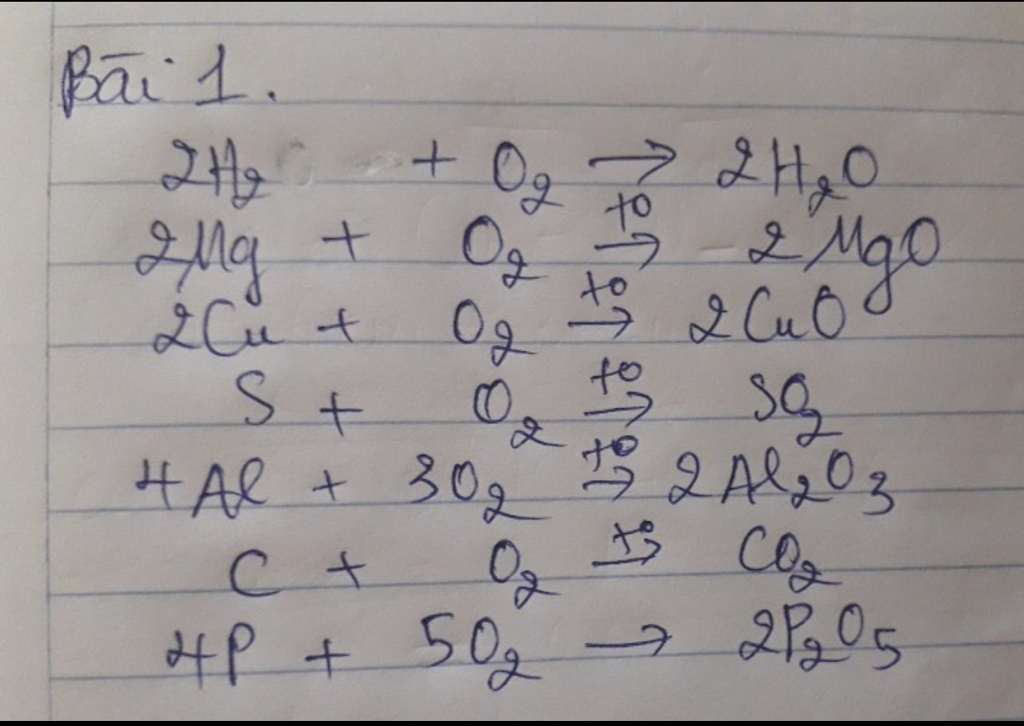 Bài 1.
2H₂ + O₂ → 2H₂O
2Mg + O₂ →^{t°} 2MgO
2Cu + O₂ →^{t°} 2CuO
S + O₂ →^{t°} SO₂
4Al + 3O₂ →^{t°} 2Al₂O₃
C + O₂ →^{t°} CO₂
4P + 5O₂ → 2P₂O₅